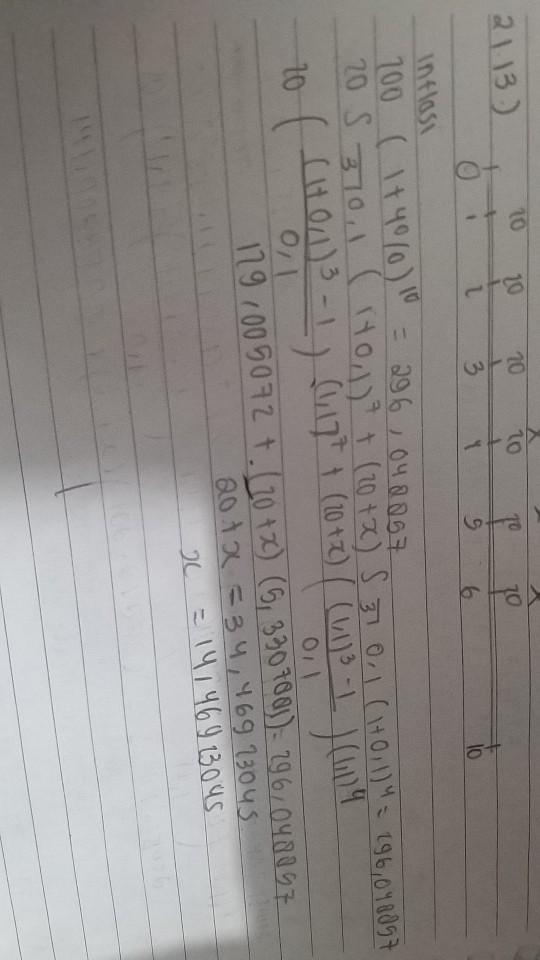 21.13.)
x x x
20 20 20 20 20 20
0 1 2 3 4 5 6 10
inflasi
200 ( 1+4%)^10 = 296,048857
20 S 3̅| 0,1 (1+0,1)^7 + (20+x) S 3̅| 0,1 (1+0,1)^4 = 296,048857
20 ( (1+0,1)^3 - 1 / 0,1 ) (1,1)^7 + (20+x) ( (1,1)^3 - 1 / 0,1 ) (1,1)^4
129,005072 + (20+x) (5,3307001) = 296,048857
20+x = 34,46923045
x = 14,46923045